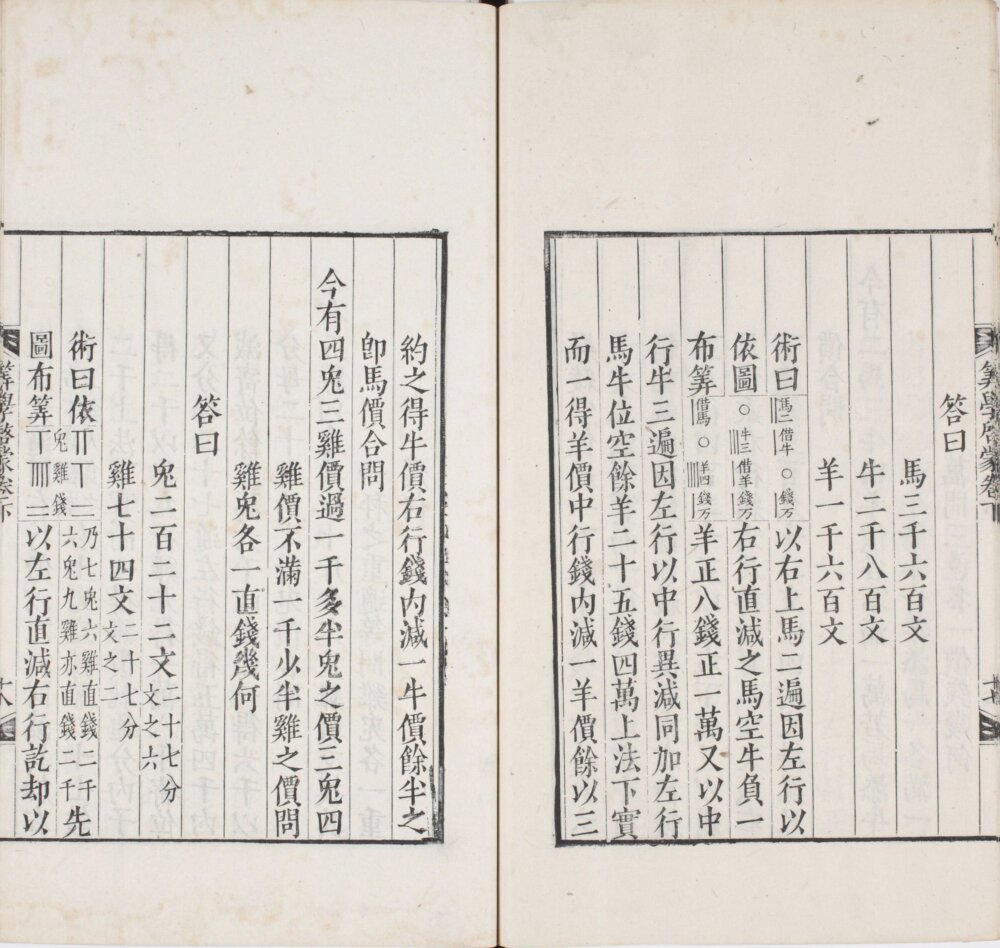 算學啓蒙卷下
十七
答曰
馬三千六百文
牛二千八百文
羊一千六百文
術曰馬二借牛〇錢万以右上馬二遍因左行以
依圖〇牛三借羊錢万右行直減之馬空牛負一
布筭借馬〇羊四錢万羊正八錢正一萬又以中
行牛三遍因左行以中行異減同加左行
馬牛位空餘羊二十五錢四萬上法下實
而一得羊價中行錢內減一羊價餘以三
約之得牛價右行錢內減一牛價餘半之
卽馬價合問
今有四兔三雞價過一千多半兔之價三兔四
雞價不滿一千少半雞之價問
雞兔各一直錢幾何
答曰
兔二百二十二文二十七分文之六
雞七十四文二十七分文之二
術曰依兔雞錢乃七兔六雞直錢二千先
圖布筭六兔九雞亦直錢二千以左行直減右行訖却以
算學啓蒙卷下
十八